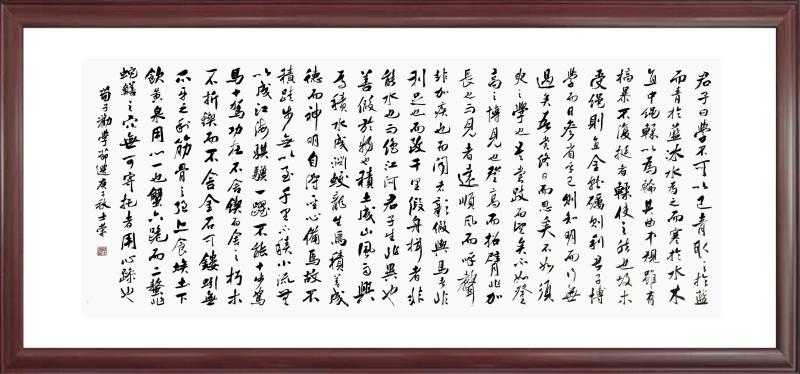 君子曰學不可以已青取之於藍
而青於藍冰水為之而寒於水木
直中繩輮以為輪其曲中規雖有
槁暴不復挺者輮使之然也故木
受繩則直金就礪則利君子博
學而日參省乎己則知明而行無
過矣吾嘗終日而思矣不如須
臾之學也吾嘗跂而望矣不如登
高之博見也登高而招臂非加
長也而見者遠順風而呼聲
非加疾也而聞者彰假輿馬者非
利足也而致千里假舟楫者非
能水也而絕江河君子生非異也
善假於物也積土成山風雨興
焉積水成淵蛟龍生焉積善成
德而神明自得聖心備焉故不
積跬步無以至千里不積小流無
以成江海騏驥一躍不能十步駑
馬十駕功在不舍鍥而舍之朽木
不折鍥而不舍金石可鏤蚓無
爪牙之利筋骨之強上食埃土下
飲黃泉用心一也蟹六跪而二螯非
蛇蟮之穴無可寄托者用心躁也
荀子勸學節選庚子秋士榮